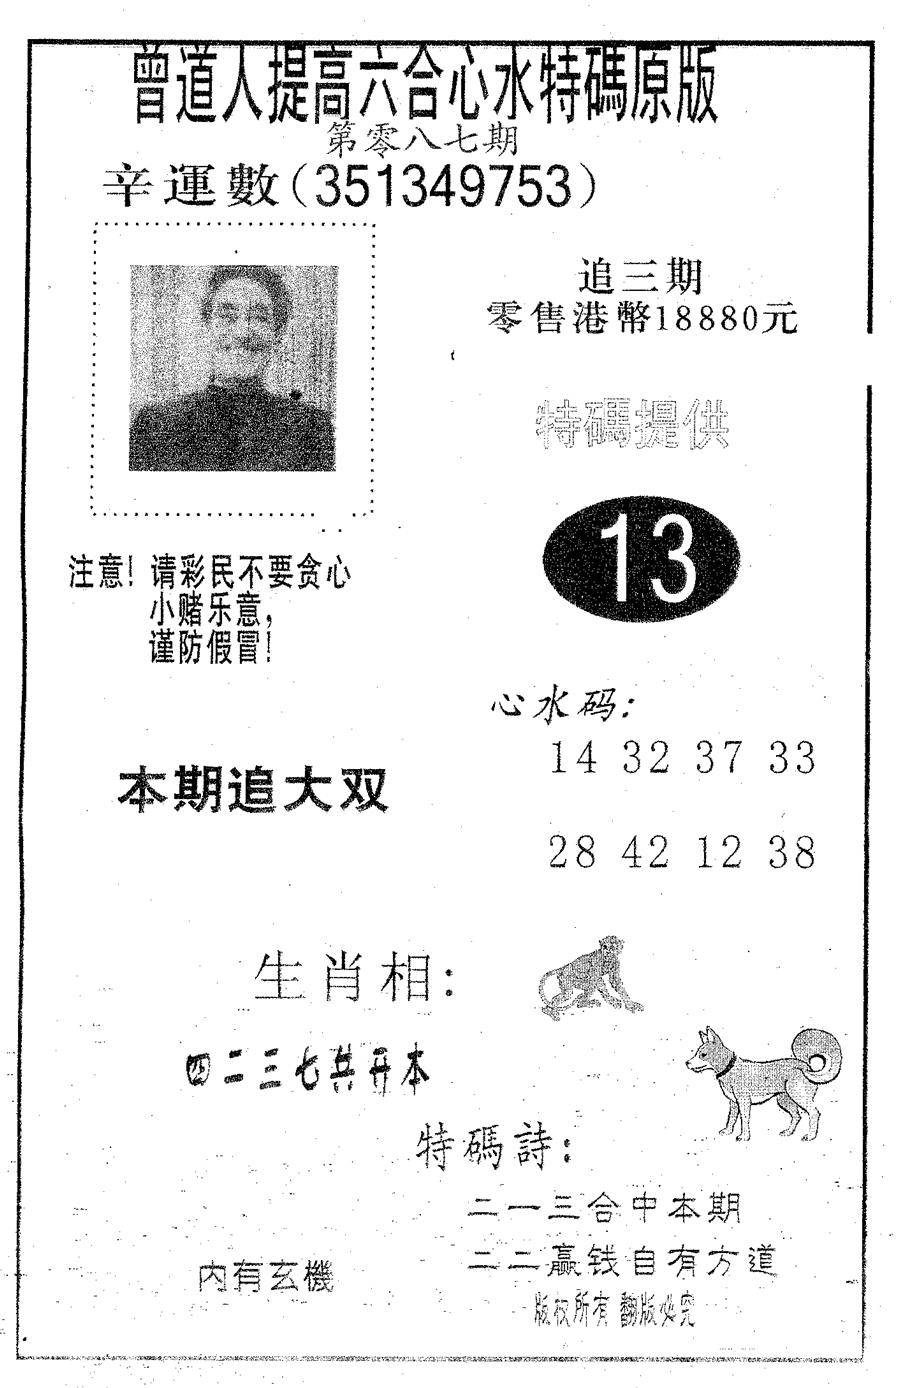 曾道人提高六合心水特碼原版
第零八七期
辛運數(351349753)
追三期
零售港幣18880元
特碼提供
13
注意!请彩民不要贪心
小赌乐意,
谨防假冒!
心水码:
14 32 37 33
本期追大双
28 42 12 38
生肖相:
四二三七共开本
特碼詩:
二一三合中本期
二二赢钱自有方道
内有玄機
版权所有 翻版必究